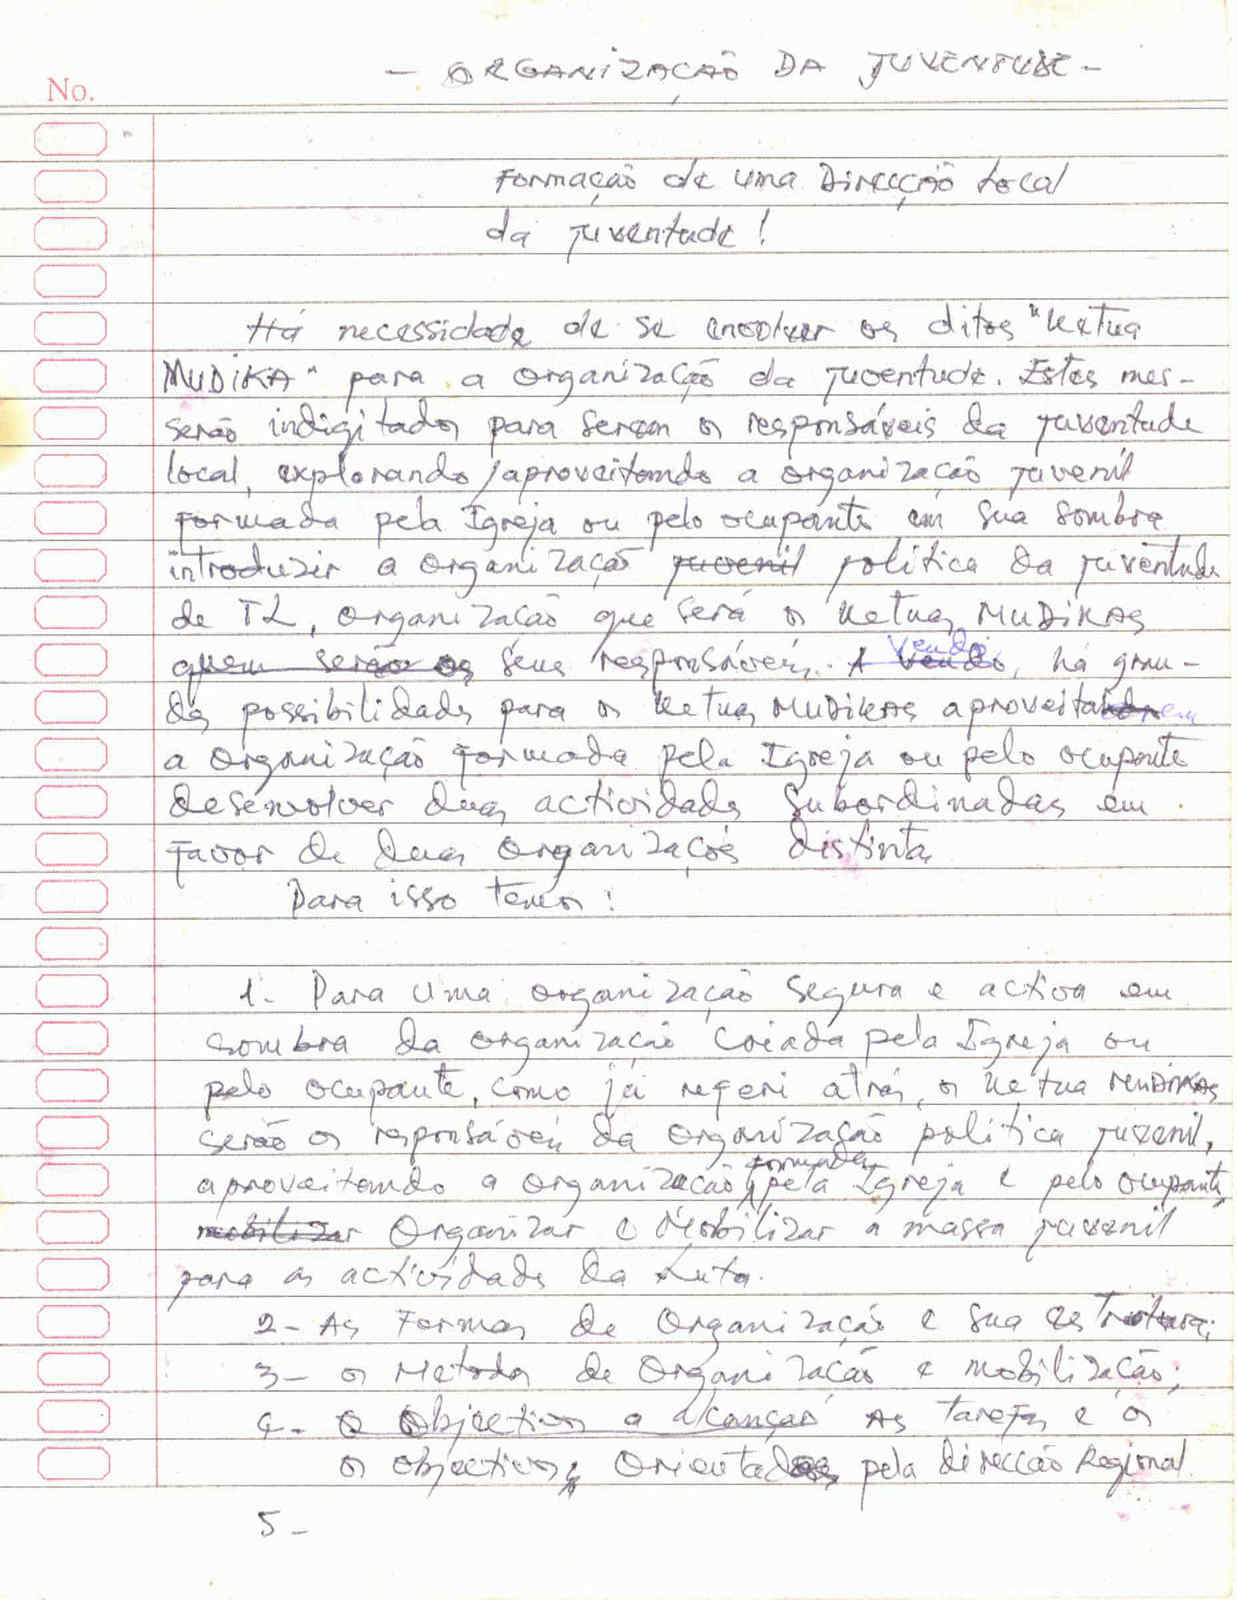 No.
- ORGANIZAÇAÕ DA JUVENTUDE -
Formação de uma Direcção Local
da juventude!
Há necessidade de se envolver os ditos "Ketua
MUDIKA" para a organização da juventude. Estes mes-
serão indigitados para serem os responsáveis da juventude
local, explorando/aproveitando a organização juvenil
formada pela Igreja ou pelo ocupante em sua sombra
introduzir a organização juvenil politica da juventude
de TL, organização que será os Ketuas MUDIKAS
quem serão os seus responsáveis. A vendo, há gran-
Vendo
des possibilidades para os Ketuas MUDIKAS aproveitarem
a organização formada pela Igreja ou pelo ocupante
desenvolver duas actividades subordinadas em
favor de duas organizações distintas
Para isso temos:
1. Para uma organização segura e activa em
sombra da organização criada pela Igreja ou
pelo ocupante, como já referi atrás, os Ketua MUDIKAS
serão os responsáveis da organização politica juvenil,
aproveitando a organização formadas pela Igreja e pelo ocupante,
mobilizar Organizar e Mobilizar a massa juvenil
para as actividades da Luta.
2- As Formas de Organização e sua estrutura;
3- os Metodos de Organização e mobilização;
4- O Objectivos a alcançar As tarefas e os
os objectivos, Orientados pela direcção Regional.
5-